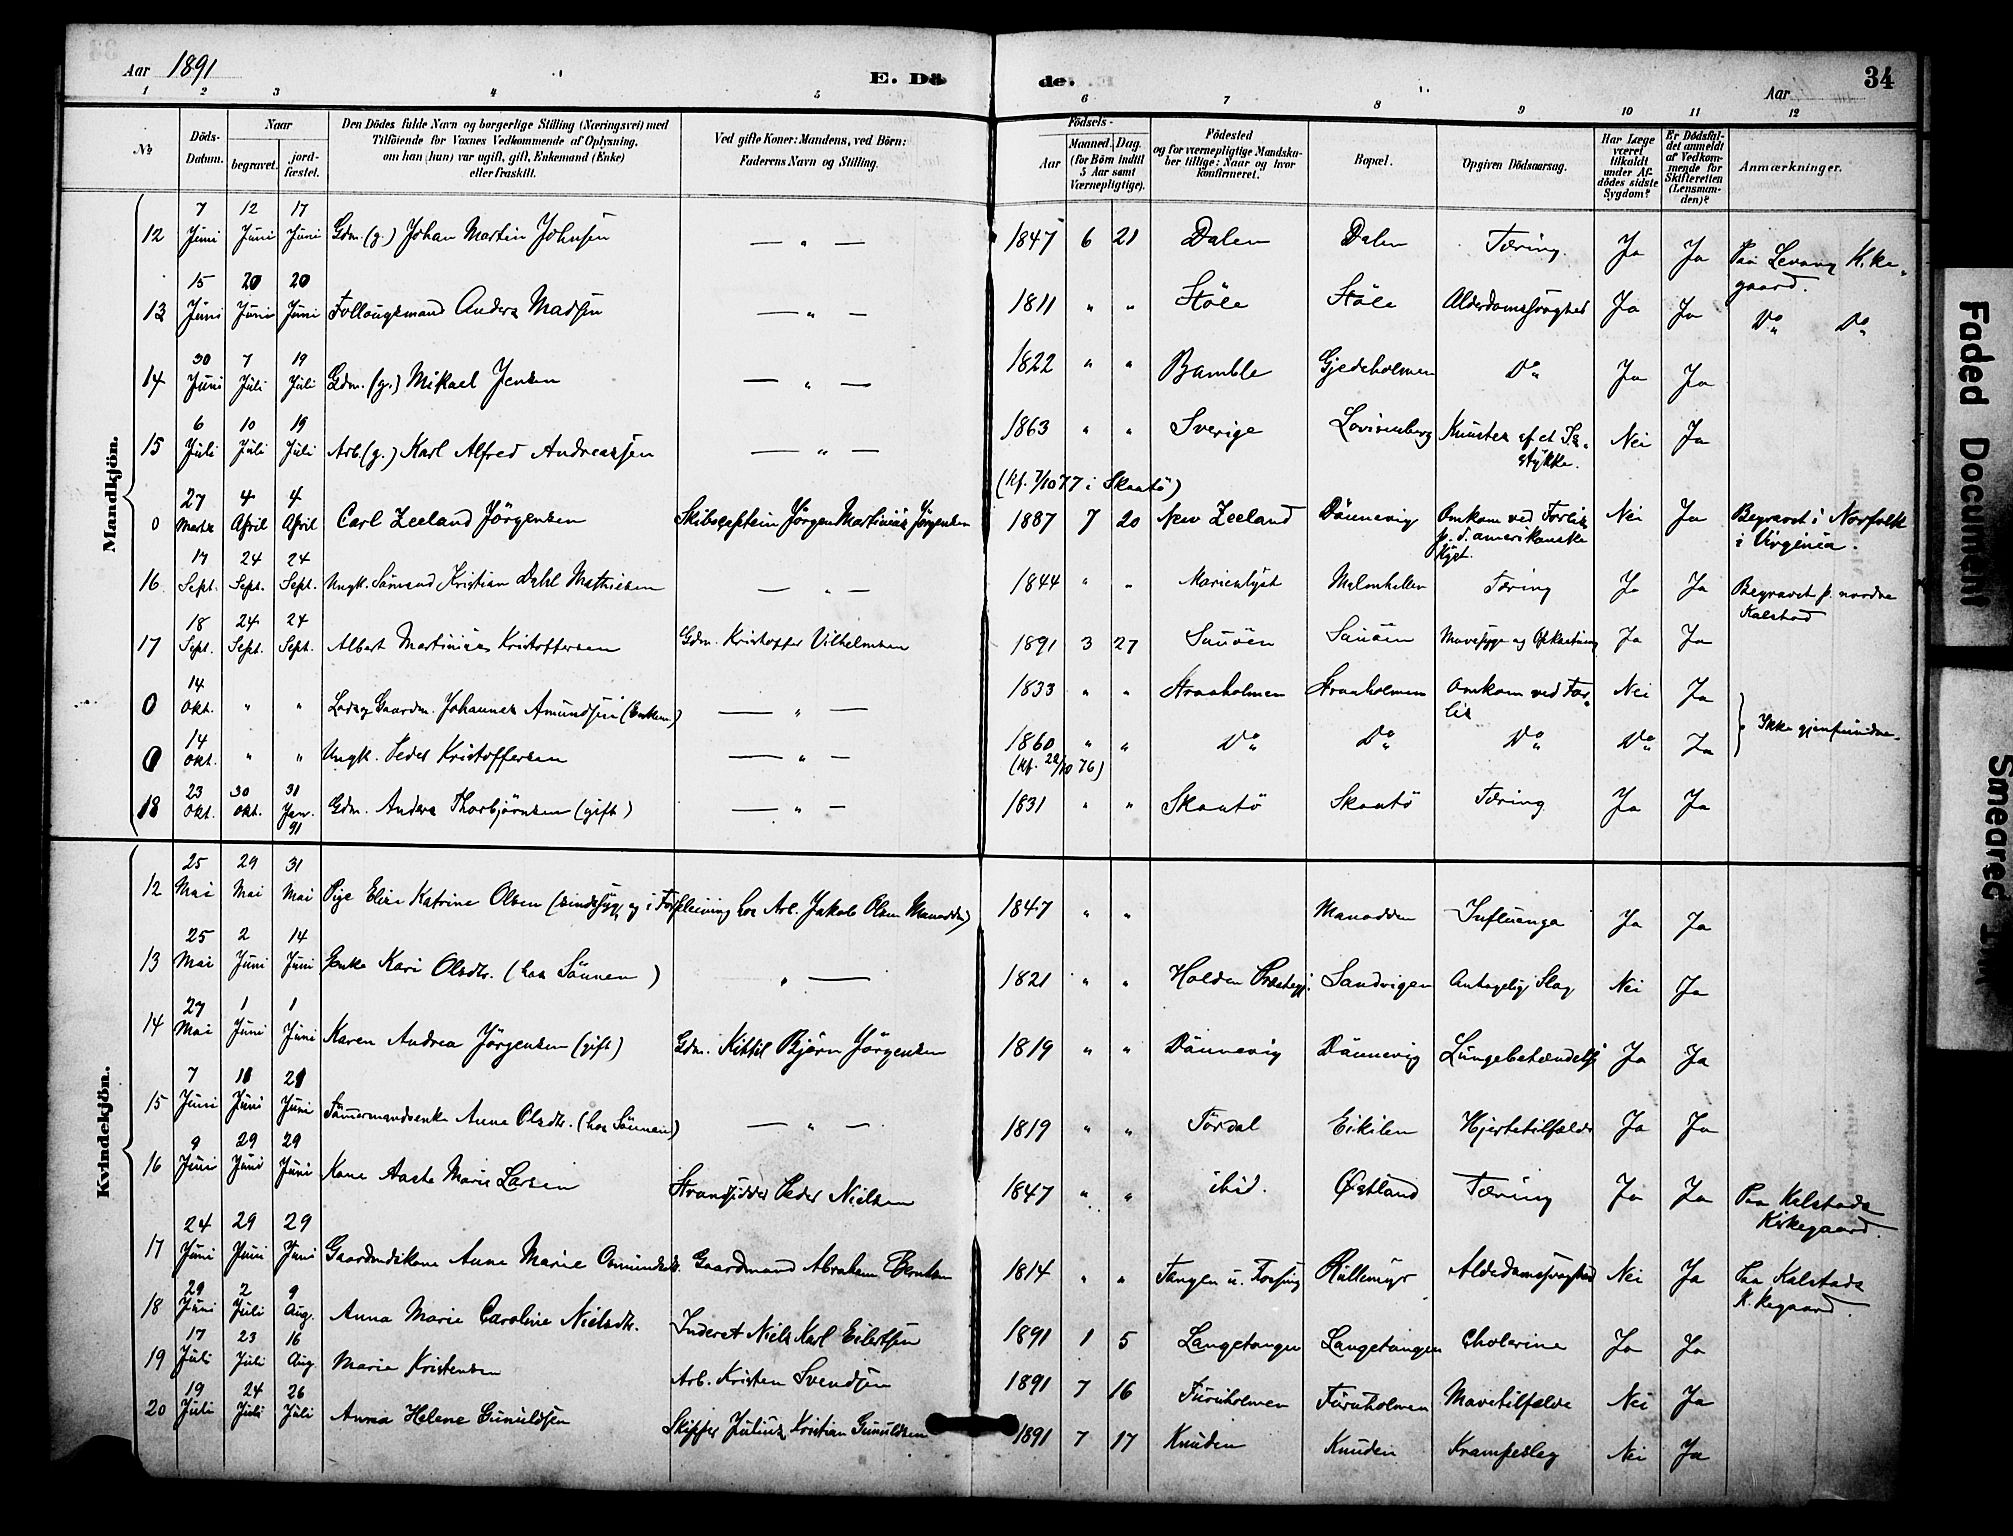 Aar 1891
E. Dö
de.
Aar
34
1 2 3 4 5 6 7 8 9 10 11 12
№
Döds-Datum.
Naar
begravet.
jord-fæstet.
Den Dödes fulde Navn og borgerlige Stilling (Næringsvei) med
Tilföiende for Voxnes Vedkommende af Oplysning,
om han (hun) var ugift, gift, Enkemand (Enke)
eller fraskilt.
Ved gifte Koner: Mandens, ved Börn:
Faderens Navn og Stilling.
Födsels-
Aar
Maaned. Dag.
(for Börn indtil
5 Aar samt
Værnepligtige).
Födested
og for værnepligtige Mandska-
ber tillige: Naar og hvor
konfirmeret.
Bopæl.
Opgiven Dödsaarsag.
Har Læge
været
tilkaldt
under Af-
dödes sidste
Sygdom?
Er Dödsfal-
det anmeldt
af Vedkom-
mende for
Skifteretten
(Lensman-
den)?
Anmærkninger.
Mandkjön.
12 7 Juni 12 Juni 17 Juni Gdm. (g.) Johan Martin Johnsen — " — 1847 6 21 Dalen Dalen Tæring. Ja Ja Paa Levang Kirke-
gaard.
13 15 Juni 20 Juni 20 Juni Follaugsmand Anders Madsen — " — 1811 " " Støle Støle Alderdomssvaghed Ja Ja Do Do
14 30 Juni 7 Juli 19 Juli Gdm. (g.) Mikael Jensen — " — 1822 " " Bamble Gjedeholmen Do Ja Ja
15 6 Juli 10 Juli 19 Juli Arb. (g.) Karl Alfred Andreassen — " — 1863 " " Sverige Lovisenberg Knustes af et Is-
stykke. Nei Ja
(Kf. 7/10 77 i Skaatö)
0 27 Marts 4 April 4 April Carl Zeeland Jörgensen Skibscaptein Jörgen Martinius Jörgensen 1887 7 20 New Zeeland Dönnevig Omkom ved Forlis
p. d. amerikanske
Kyst. Nei Ja Begravet i Norfolk
i Virginia.
16 17 Sept. 24 Sept. 24 Sept. Ungk. Sömand Kristian Dahl Mathisen — " — 1844 " " Marienlyst Malmhellen Tæring Ja Ja Begravet p. nordre
Kalstad
17 18 Sept. 24 Sept. 24 Sept. Albert Martinius Kristoffersen Gdm. Kristoffer Vilhelmsen 1891 3 27 Sauöen Sauöen Mavesyge og Opkastning Ja Ja
0 14 Okt. " " Lods og Gaardm. Johannes Amundsen (Enkem.) — " — 1833 " " Straaholmen Straaholmen Omkom ved For-
lis Nei Ja
0 14 Okt. " " Ungk. Peder Kristoffersen — " — 1860 " " Do Do Do Do Ja Ikke gjenfundne.
(Kf. 22/10 76)
18 23 Okt. 30 Okt. 31 Jan. 91 Gdm. Anders Thorbjörnsen (gift) — " — 1831 " " Skaatö Skaatö Tæring Ja Ja
Kvindekjön.
12 25 Mai 29 Mai 31 Mai Pige Elise Katrine Olsen (sindssyg og i Forpleining hos Arb. Jakob Olsen Manodden) 1847 " " Manodden Influenza Ja Ja
13 25 Mai 2 Juni 14 Juni Enke Kari Olsdtr. (hos Sönnen) " — 1821 " " Holden Præstegj. Sandvigen Antagelig Slag Nei Ja
14 27 Mai 1 Juni 1 Juni Karen Andrea Jörgensen (gift) Gdm. Kittil Björn Jörgensen 1819 " " Dönnevig Dönnevig Lungebetændelse Ja Ja
15 7 Juni 11 Juni 21 Juni Tömmermandsenke Anne Olsdtr. (hos Sönnen) — " — 1819 " " Tördal Eikilen Hjertetilfælde Ja Ja
16 9 Juni 29 Juni 29 Juni Kone Aaste Marie Larsen Strandsidder Peder Nielsen 1847 " " ibid. Östland Tæring Ja Ja Paa Kalstads
Kirkegaard.
17 24 Juni 29 Juni 29 Juni Gaardmdskone Anne Marie Osmundsdtr. Gaardmand Abraham Berntsen 1814 " " Tangen u. Fossing Rullemyr Alderdomssvaghed Nei Ja Paa Kalstads
Kirkegaard.
18 29 Juni 2 Juli 9 Aug. Anna Marie Caroline Nielsdtr. Inderst Niels Karl Eilertsen 1891 1 5 Langetangen Langetangen Cholerine Ja Ja
19 17 Juli 23 Juli 16 Aug. Marie Kristensen Arb. Kristen Svendsen 1891 7 16 Furuholmen Furuholmen Mavetilfælde Nei Ja
20 19 Juli 24 Juli 26 Juli Anna Helene Gunuldsen Skipper Julius Kristian Gunuldsen 1891 7 17 Knuden Knuden Krampeslag Nei Ja
Faded Document
Smeared Ink